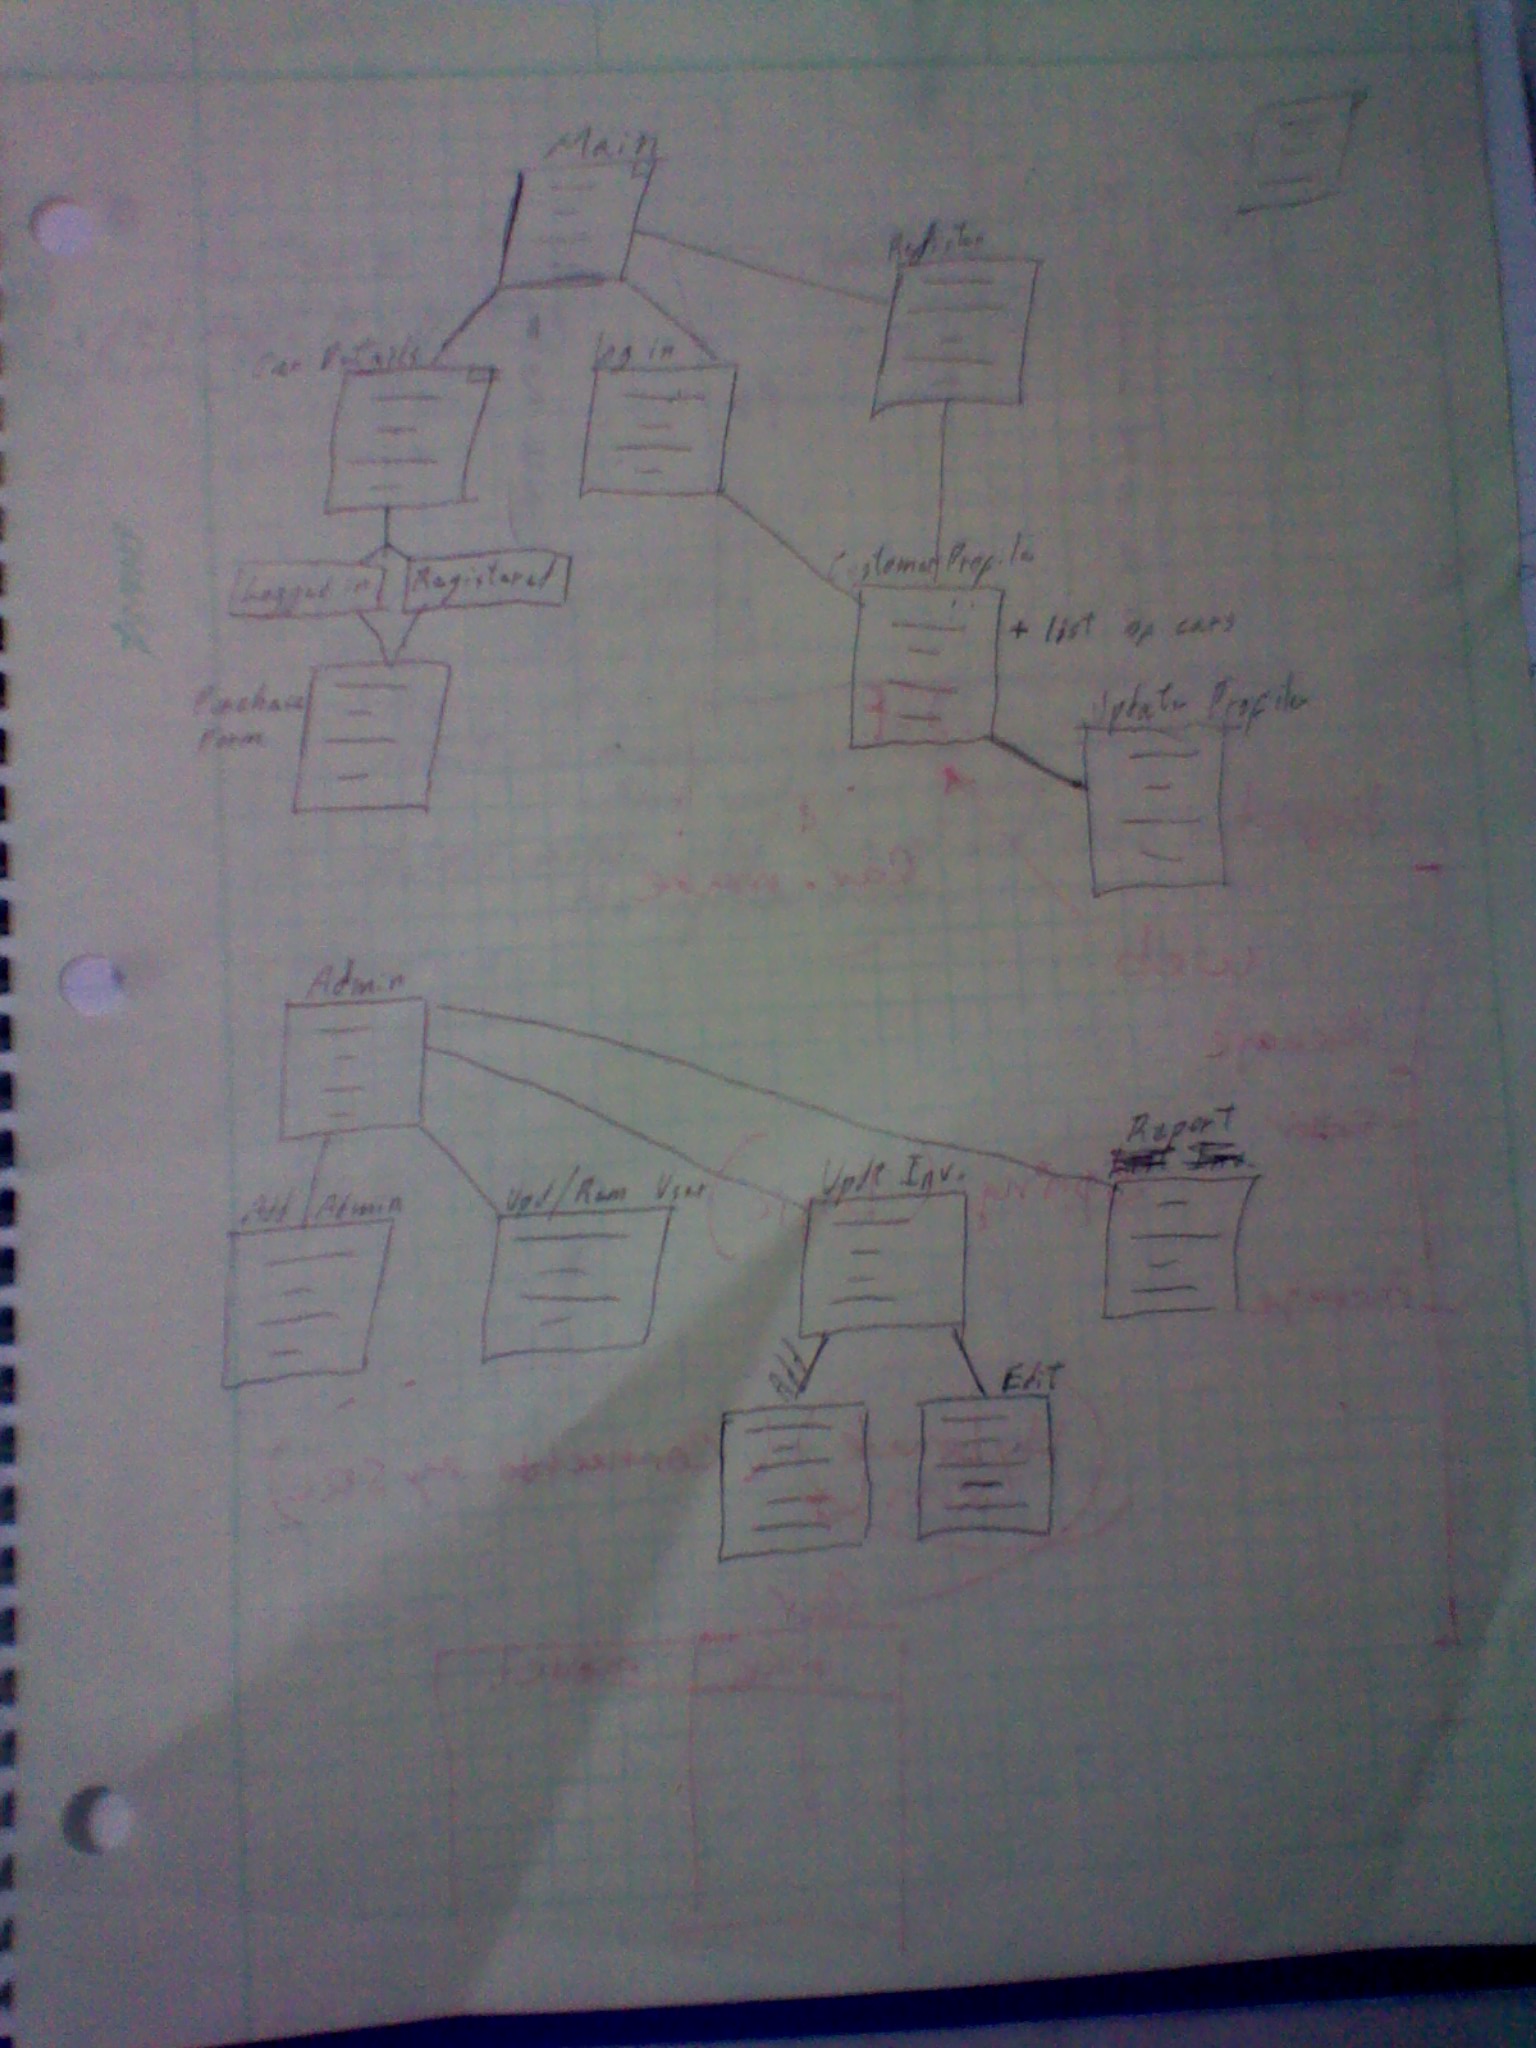 Main
Register
Car Details
Log in
Logged in
Registered
Customer Profile
+ list of cars
Purchase
Form
Update Profile
Admin
Report
Add Admin
Upd/Rem User
Updt Inv.
Add
Edit